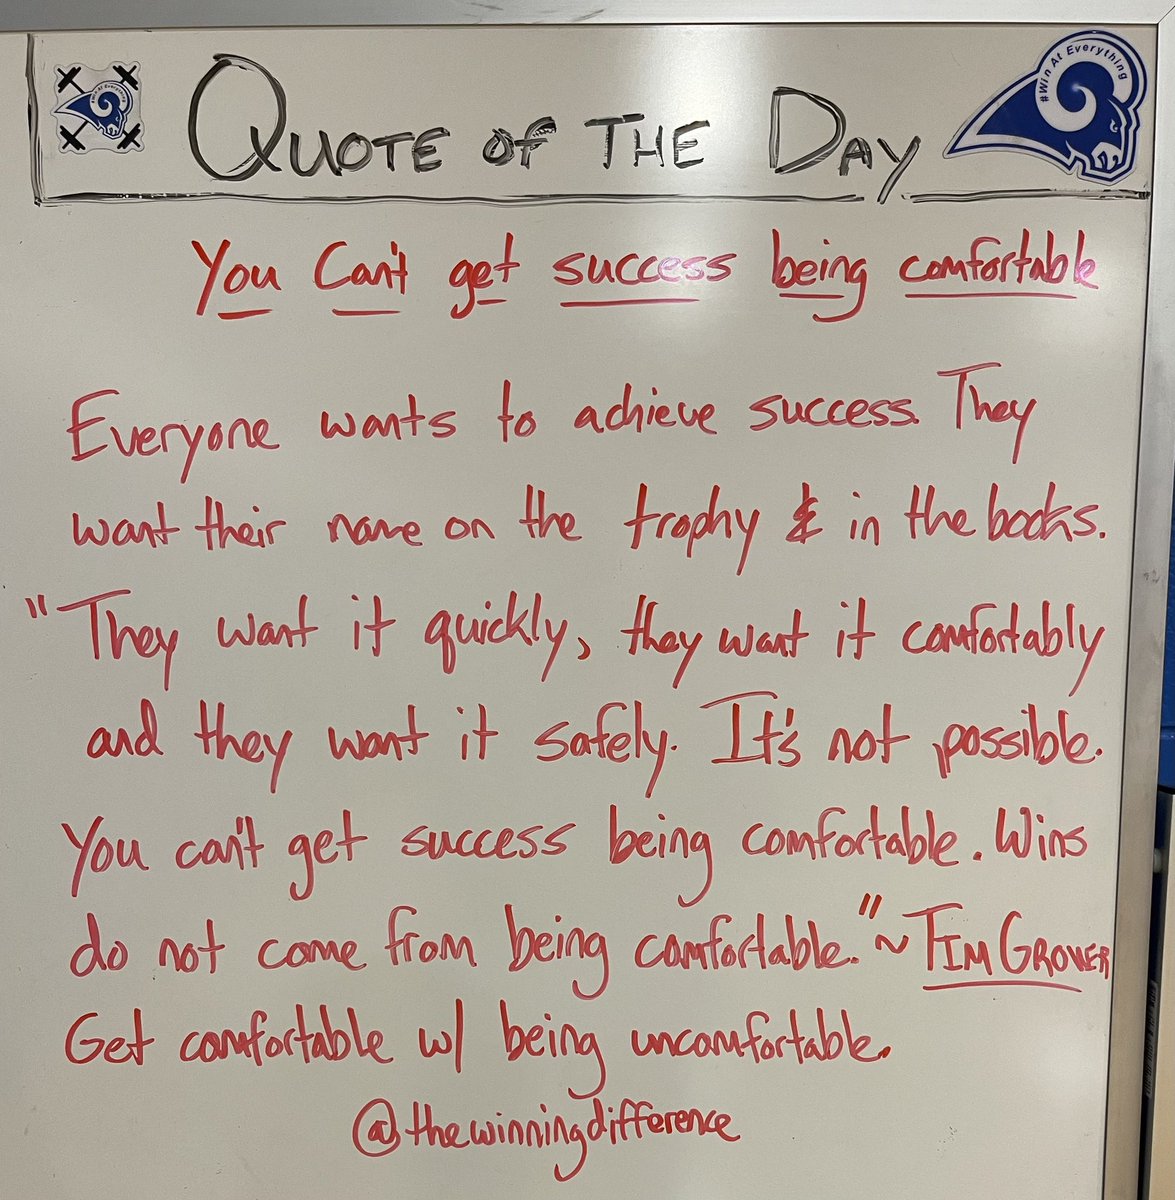 #Win At Everything
QUOTE OF THE DAY
#Win At Everything
You Can't get success being comfortable
Everyone wants to achieve success. They
want their name on the trophy & in the books.
"They want it quickly, they want it comfortably
and they want it safely. It's not possible.
You can't get success being comfortable. Wins
do not come from being comfortable." ~ TIM GROVER
Get comfortable w/ being uncomfortable.
@thewinningdifference